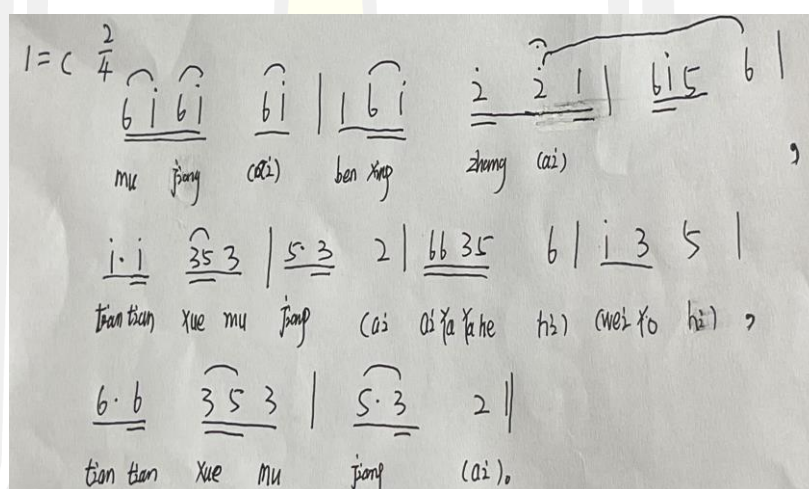 1=C 2/4
6 i 6 i 6 i | 1 6 i 2 2 1 | 6 i 5 6 |
mu jiang (ai) ben xing zhang (ai) ,
i· i 3 5 3 | 5· 3 2 | 6 6 3 5 6 | i 3 5 |
tian tian xue mu jiang (ai ai ya ya he hi) (wei yo hi) ,
6· 6 3 5 3 | 5· 3 2 ||
tian tian xue mu jiang (ai)。